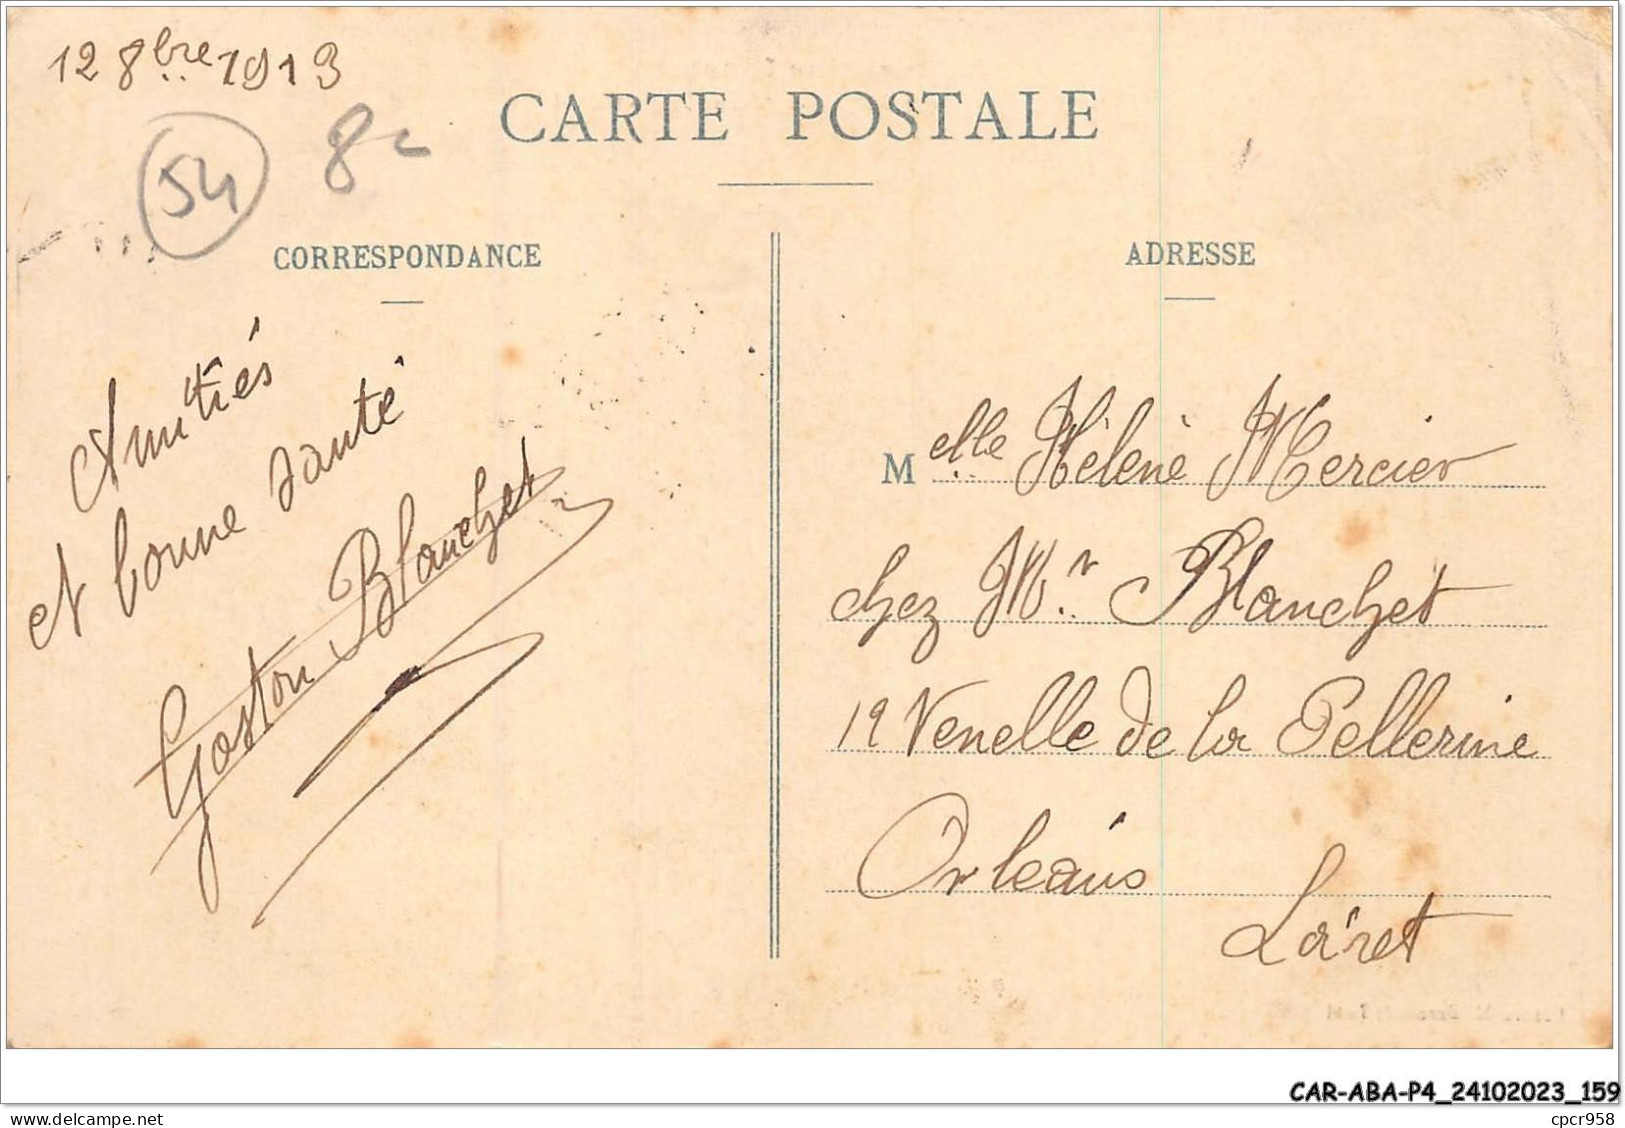 12 8bre 1913
CARTE POSTALE
54
8
CORRESPONDANCE
Amitiés
et bonne santé
Gaston Blanchet
ADRESSE
Melle Hélène Mercier
chez Mr Blanchet
19 Venelle de la Pellerine
Orléans
Loiret
CAR-ABA-P4_24102023_159
cpcr958